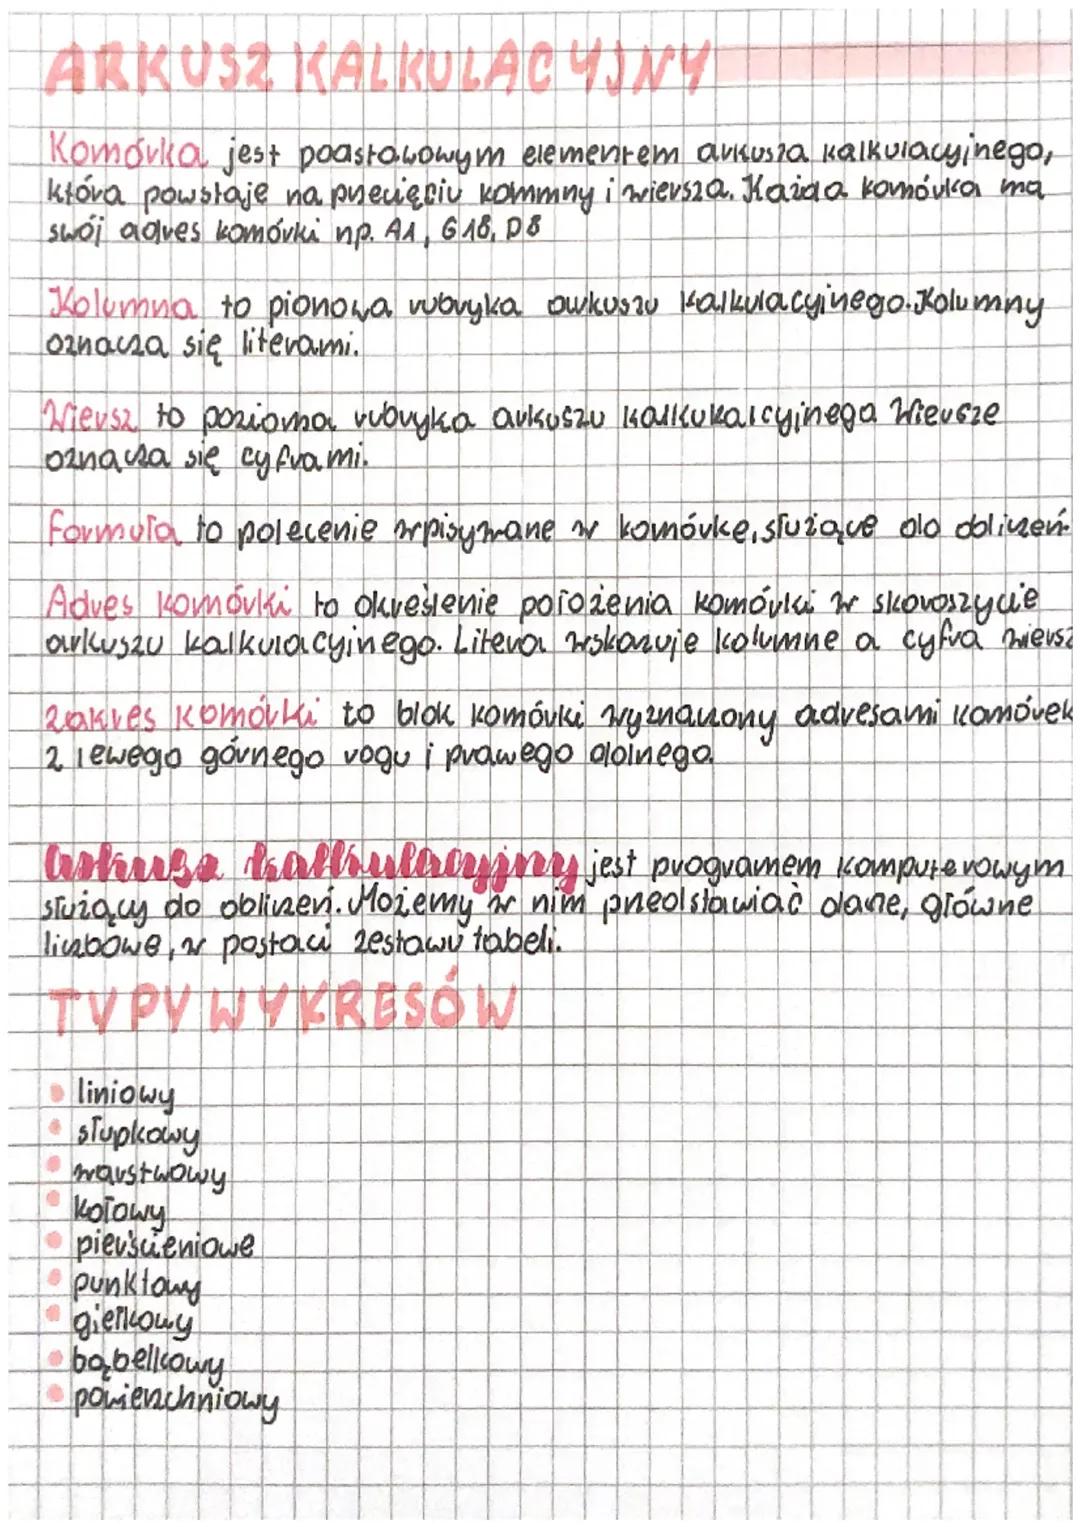 ARKUSZ KALKULACYJNY
Komórka jest podstawowym elementem arkusza kalkulacyjnego,
która powstaje na przecięciu kolumny i wiersza. Każda komórka ma
swój adres komórki np. A1, G18, D8
Kolumna to pionowa rubryka arkuszu kalkulacyjnego. Kolumny
oznacza się literami.
Wiersz to pozioma rubryka arkuszu kalkukalcyjnega Wiersze
oznacza się cyframi.
Formuła to polecenie wpisywane w komórkę, służące do obliczeń
Adres komórki to określenie położenia komórki w skoroszycie
arkuszu kalkulacyjnego. Litera wskazuje kolumne a cyfra wiersz
zakres komórki to blok komórki wyznaczony adresami komórek
z lewego górnego rogu i prawego dolnego.
arkusz kalkulacyjny jest programem komputerowym
służący do obliczeń. Możemy w nim przedstawiać dane, główne
liczbowe, w postaci zestawu tabeli.
TYPY WYKRESÓW
• liniowy
• słupkowy
• warstwowy
• kołowy
• pierścieniowe
• punktowy
• giełkowy
• bąbelkowy
• powierzchniowy